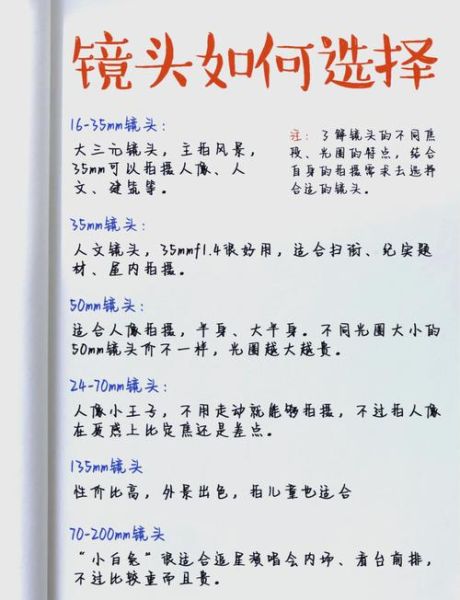 镜头如何选择
16-35mm镜头：
大三元镜头，主拍风景，
35mm可以拍摄人像、人
文、建筑等。
注：了解镜头的不同焦
段、光圈的特点，结合
自身的拍摄需求去选择
合适的镜头。
35mm镜头：
人文镜头，35mmf1.4很好用，适合扫街、纪实题
材、屋内拍摄。
50mm镜头：
适合人像拍摄，半身、大半身。不同光圈大小的
50mm镜头价不一样，光圈越大越贵。
24-70mm镜头：
人像小王子，不用走动就能够拍摄，不过拍人像
在质感上比定焦还是差点。
135mm镜头
性价比高，外景出色，拍儿童也适合
70-200mm镜头
“小白兔”很适合追星演唱会内场、看台前排，
不过比较重而且贵。